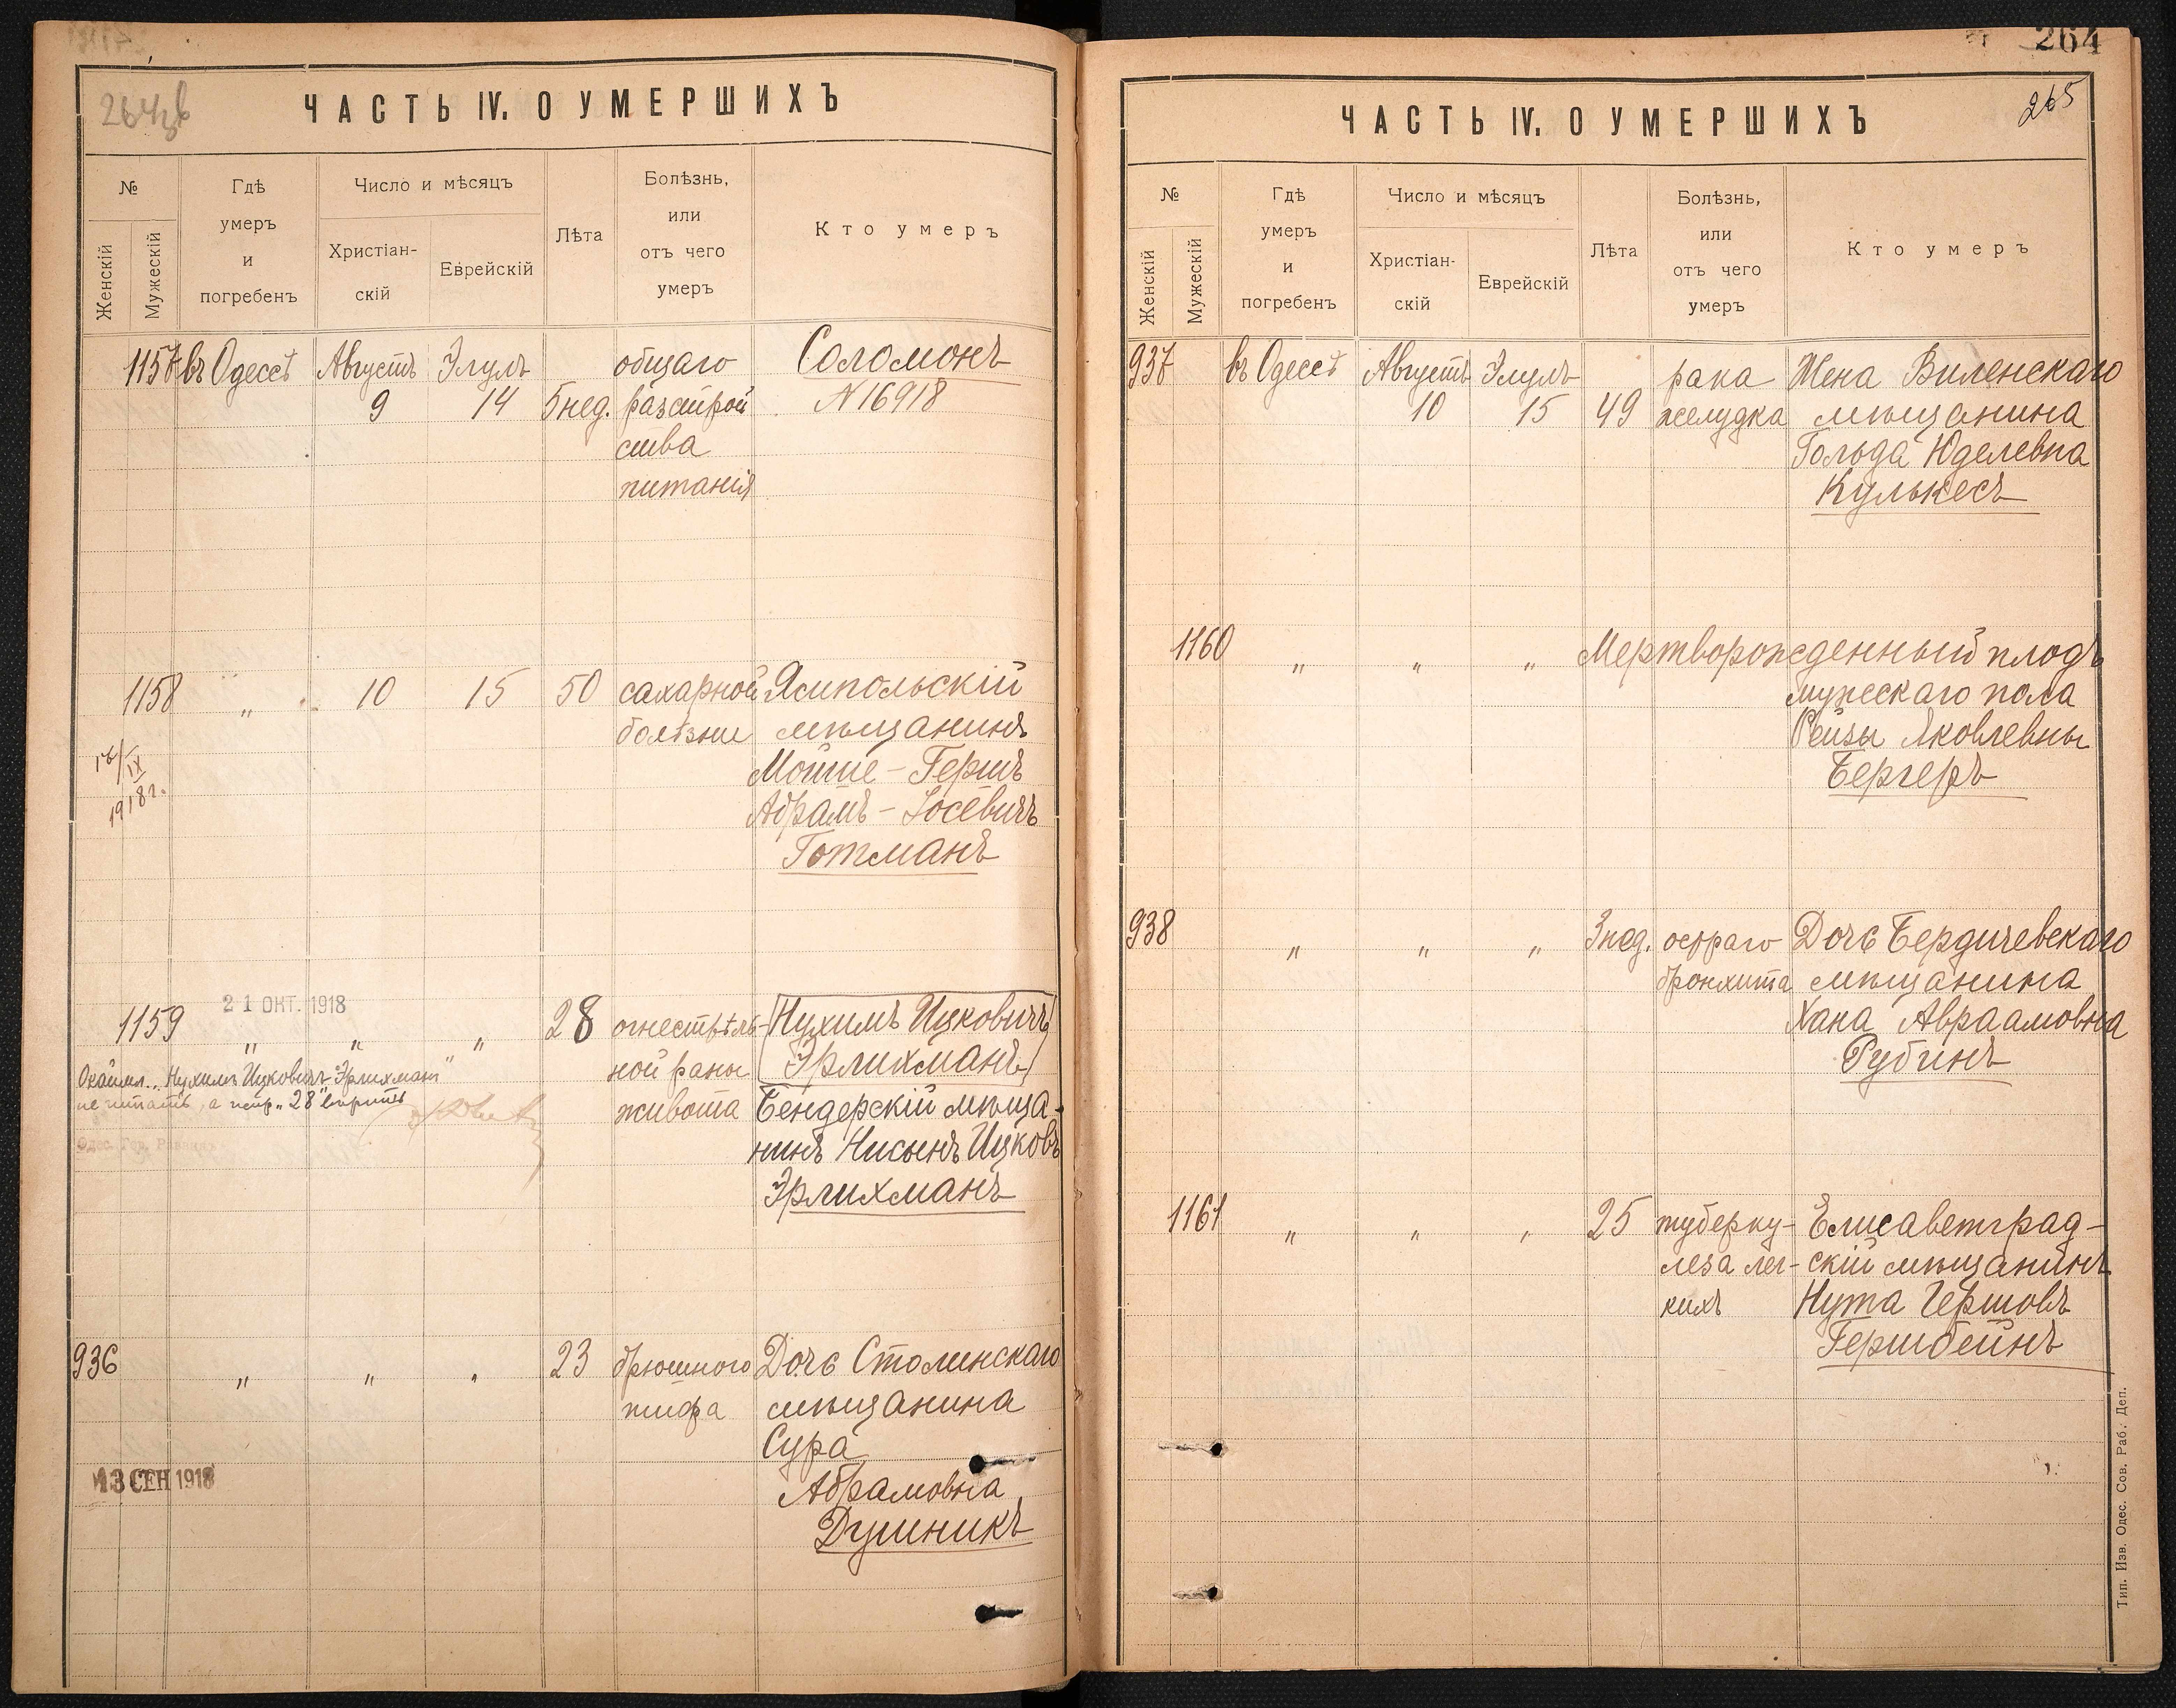 ЧАСТЬ IV. О УМЕРШИХЪ
№
Женскій
Мужескій
Гдѣ
умеръ
и
погребенъ
Число и мѣсяцъ
Христіан-
скій
Еврейскій
Лѣта
Болѣзнь,
или
отъ чего
умеръ
Кто умеръ
1157 въ Одессѣ Августъ Элулъ общаго Соломонъ
9 14 5 нед. разстрой N16918
ства
питанія
1158 „ 10 15 50 сахарной Ямпольскій
болѣзни мѣщанинъ
Мойше-Гершъ
Абрамъ-Іосевичъ
Готманъ
IX
1918 г.
21 ОКТ. 1918
1159 „ „ „ 28 огнестрѣль- Нухимъ Ицковичъ
ной раны Эрлихманъ
живота Бендерскій мѣща-
нинъ Нисынъ Ицковъ
Эрлихманъ
Нухимъ Ицковичъ Эрлихман"
не читать, а "28" вѣрить
936 „ „ „ 23 брюшного Дочь Столинскаго
тифа мѣщанина
Сура
Абрамовна
Душникъ
13 СЕН 1918
264
265
ЧАСТЬ IV. О УМЕРШИХЪ
№
Женскій
Мужескій
Гдѣ
умеръ
и
погребенъ
Число и мѣсяцъ
Христіан-
скій
Еврейскій
Лѣта
Болѣзнь,
или
отъ чего
умеръ
Кто умеръ
937 въ Одессѣ Августъ Элулъ рака Жена Виленскаго
10 15 49 желудка мѣщанина
Гольда Юделевна
Кулькесъ
1160 „ „ „ Мертворожденный плодъ
мужескаго пола
Рейзы Яковлевны
Бергеръ
938 „ „ „ 3 нед. остраго Дочь Бердичевскаго
бронхита мѣщанина
Хана Авраамовна
Рубинъ
1161 „ „ „ 25 туберку- Елисаветград-
леза лег- скій мѣщанинъ
кихъ Нута Гершовъ
Гершбейнъ
Тип. Изв. Одес. Сов. Раб. Деп.